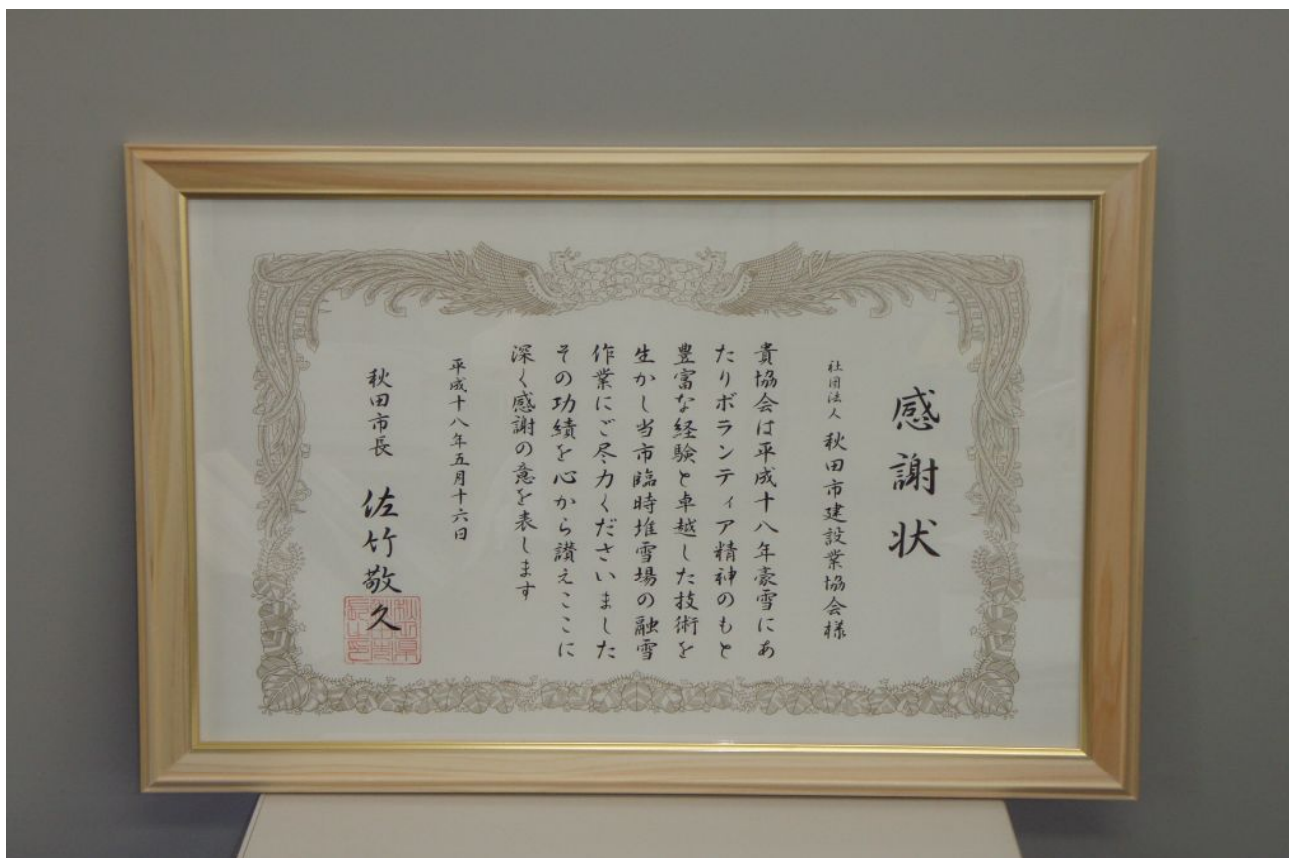 感謝状
社団法人 秋田市建設業協会様
貴協会は平成十八年豪雪にあ
たりボランティア精神のもと
豊富な経験と卓越した技術を
生かし当市臨時堆雪場の融雪
作業にご尽力くださいました
その功績を心から讃えここに
深く感謝の意を表します
平成十八年五月十六日
秋田市長 佐竹敬久